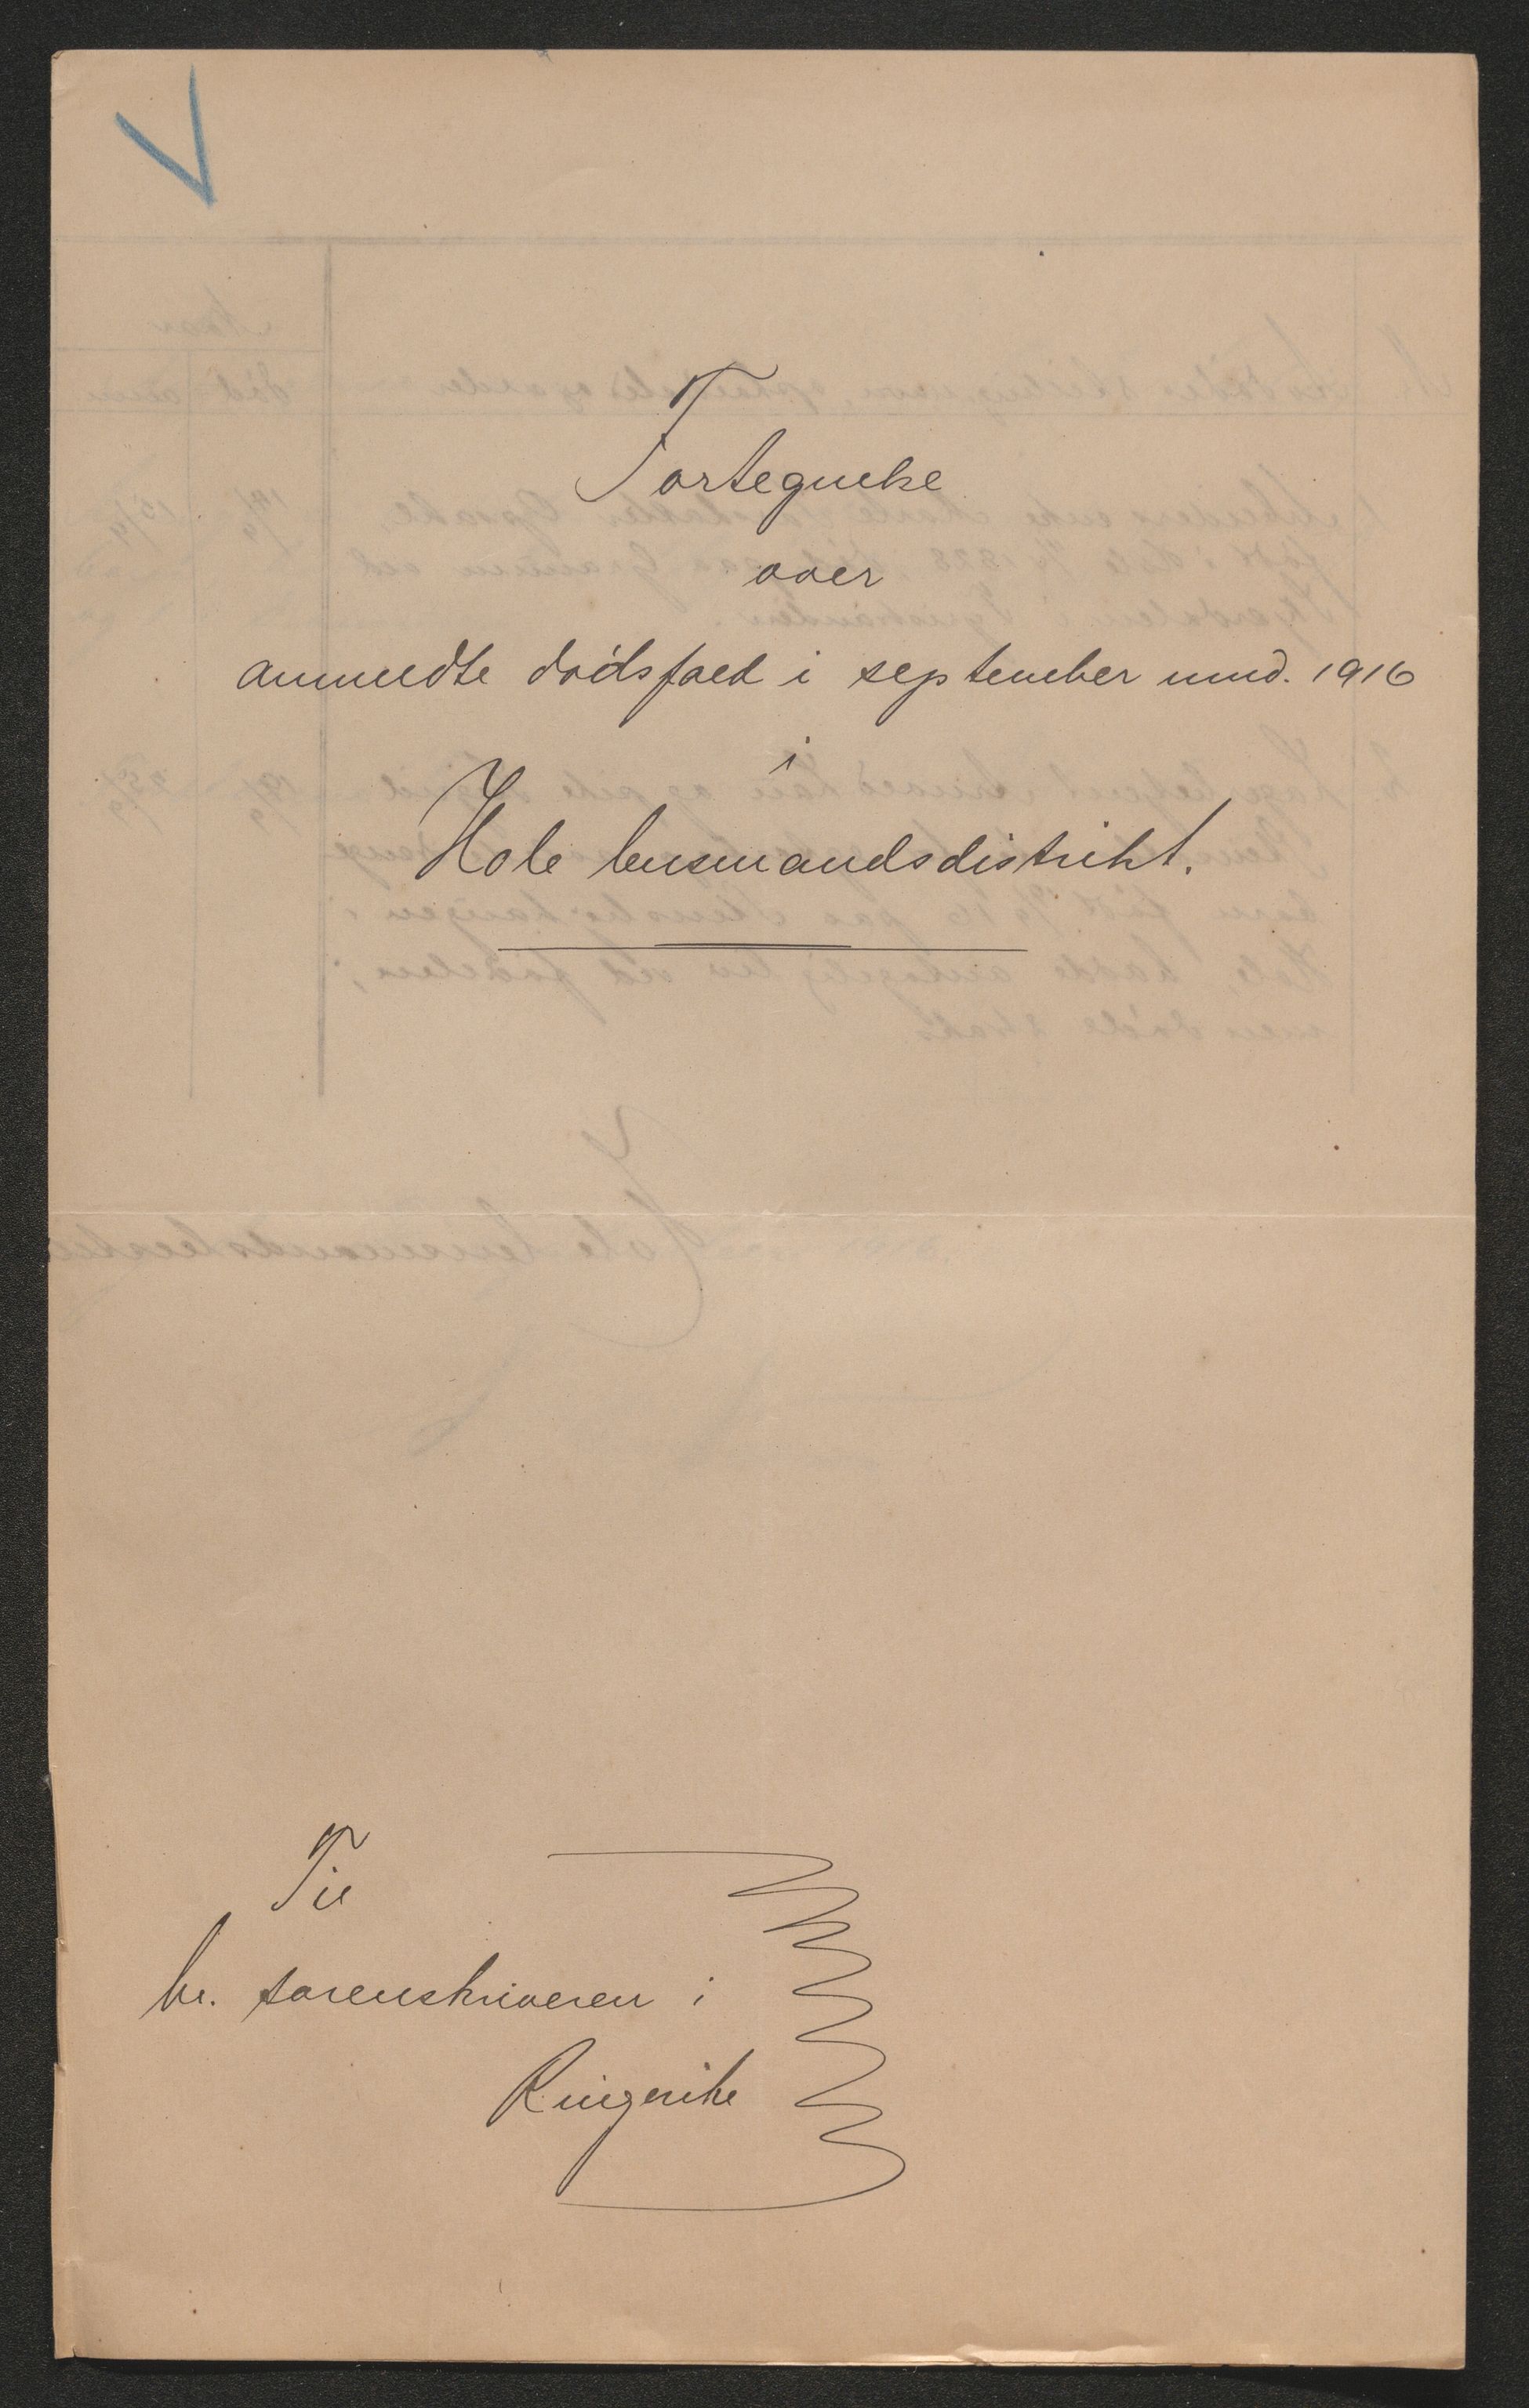 Fortegnelse
over
anmeldte dødsfald i september mnd. 1916
i
Hole lensmandsdistrikt.
Til
hr. sorenskriveren i
Ringerike